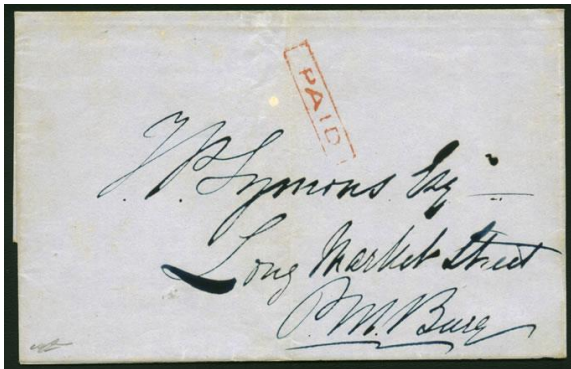 PAID
J.P. Symons Esqr
Long Market Street
P.M.Burg